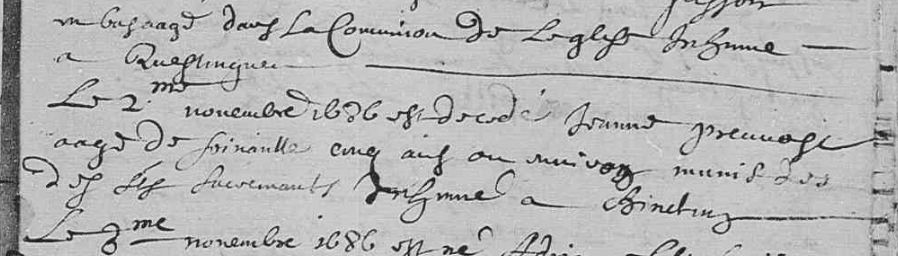 en bas aagé dans La Communion de Leglise Inhumé
a
Le 2.me novembre 1686 est decedé Jeanne preuvost
aagé de soixante cinq ans ou environ munis des
des sts sacremants Inhumé a
Le 3me novembre 1686 est né